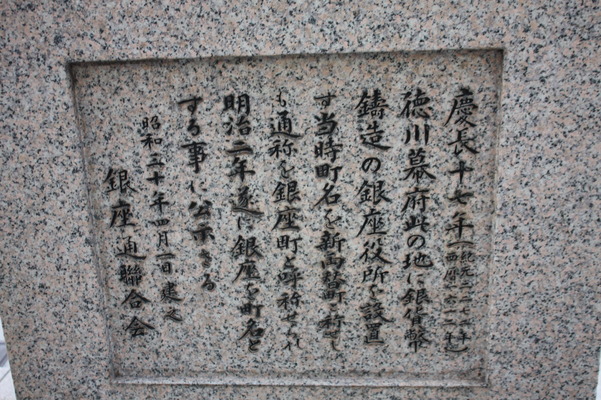 慶長十七年(紀元二二七二年 西暦一六一二年)
徳川幕府此の地に銀貨幣
鋳造の銀座役所を設置
す当時町名を新両替町と称せし
も通称を銀座町と呼称せられ
明治二年遂に銀座を町名と
する事に公示さる
昭和三十年四月一日建之
銀座通聯合会